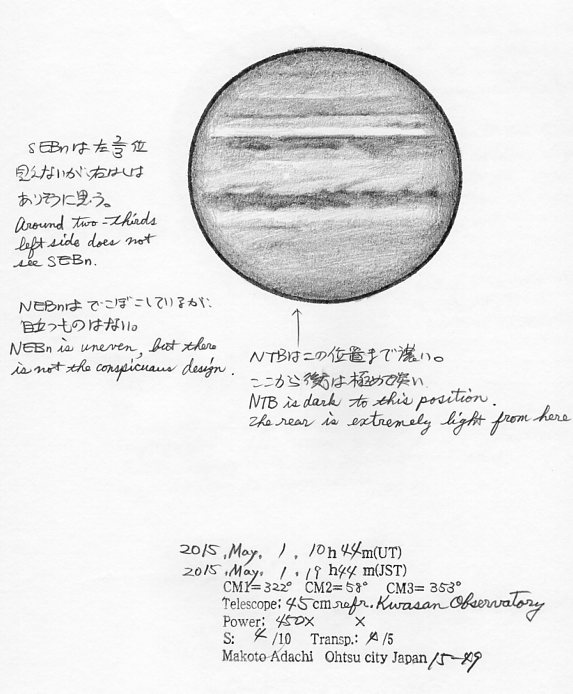 SEBnは左2/3位
見えないが、右はしは
ありそうに思う。
Around two-thirds
left side does not
see SEBn.
NEBnは でこぼこしているが、
目立つものはない。
NEBn is uneven, but there
is not the conspicuous design.
NTBはこの位置まで濃い。
ここから後は極めて淡い
NTB is dark to this position.
The rear is extremely light from here
2015, May, 1, 10h44m(UT)
2015, May, 1, 19h44m(JST)
CM1=322° CM2=58° CM3=353°
Telescope: 45cm refr. Kwasan Observatory
Power: 450× ×
S: 4/10 Transp.: 4/5
Makoto Adachi Ohtsu city Japan 15-49